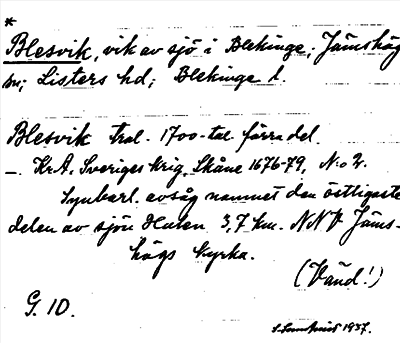 *
Blesvik, vik av sjö i Blekinge; Jämshög
sn; Listers hd; Blekinge l.
Blesvik tral. 1700-tal. förra del.
–. Kr.A. Sveriges krig, Skåne 1676-79, N:o 2.
Synbarl. avsåg namnet den östligaste
delen av sjön Halen 3,7 km. NNV Jäms-
högs kyrka.
(Vänd!)
G. 10.
1937.